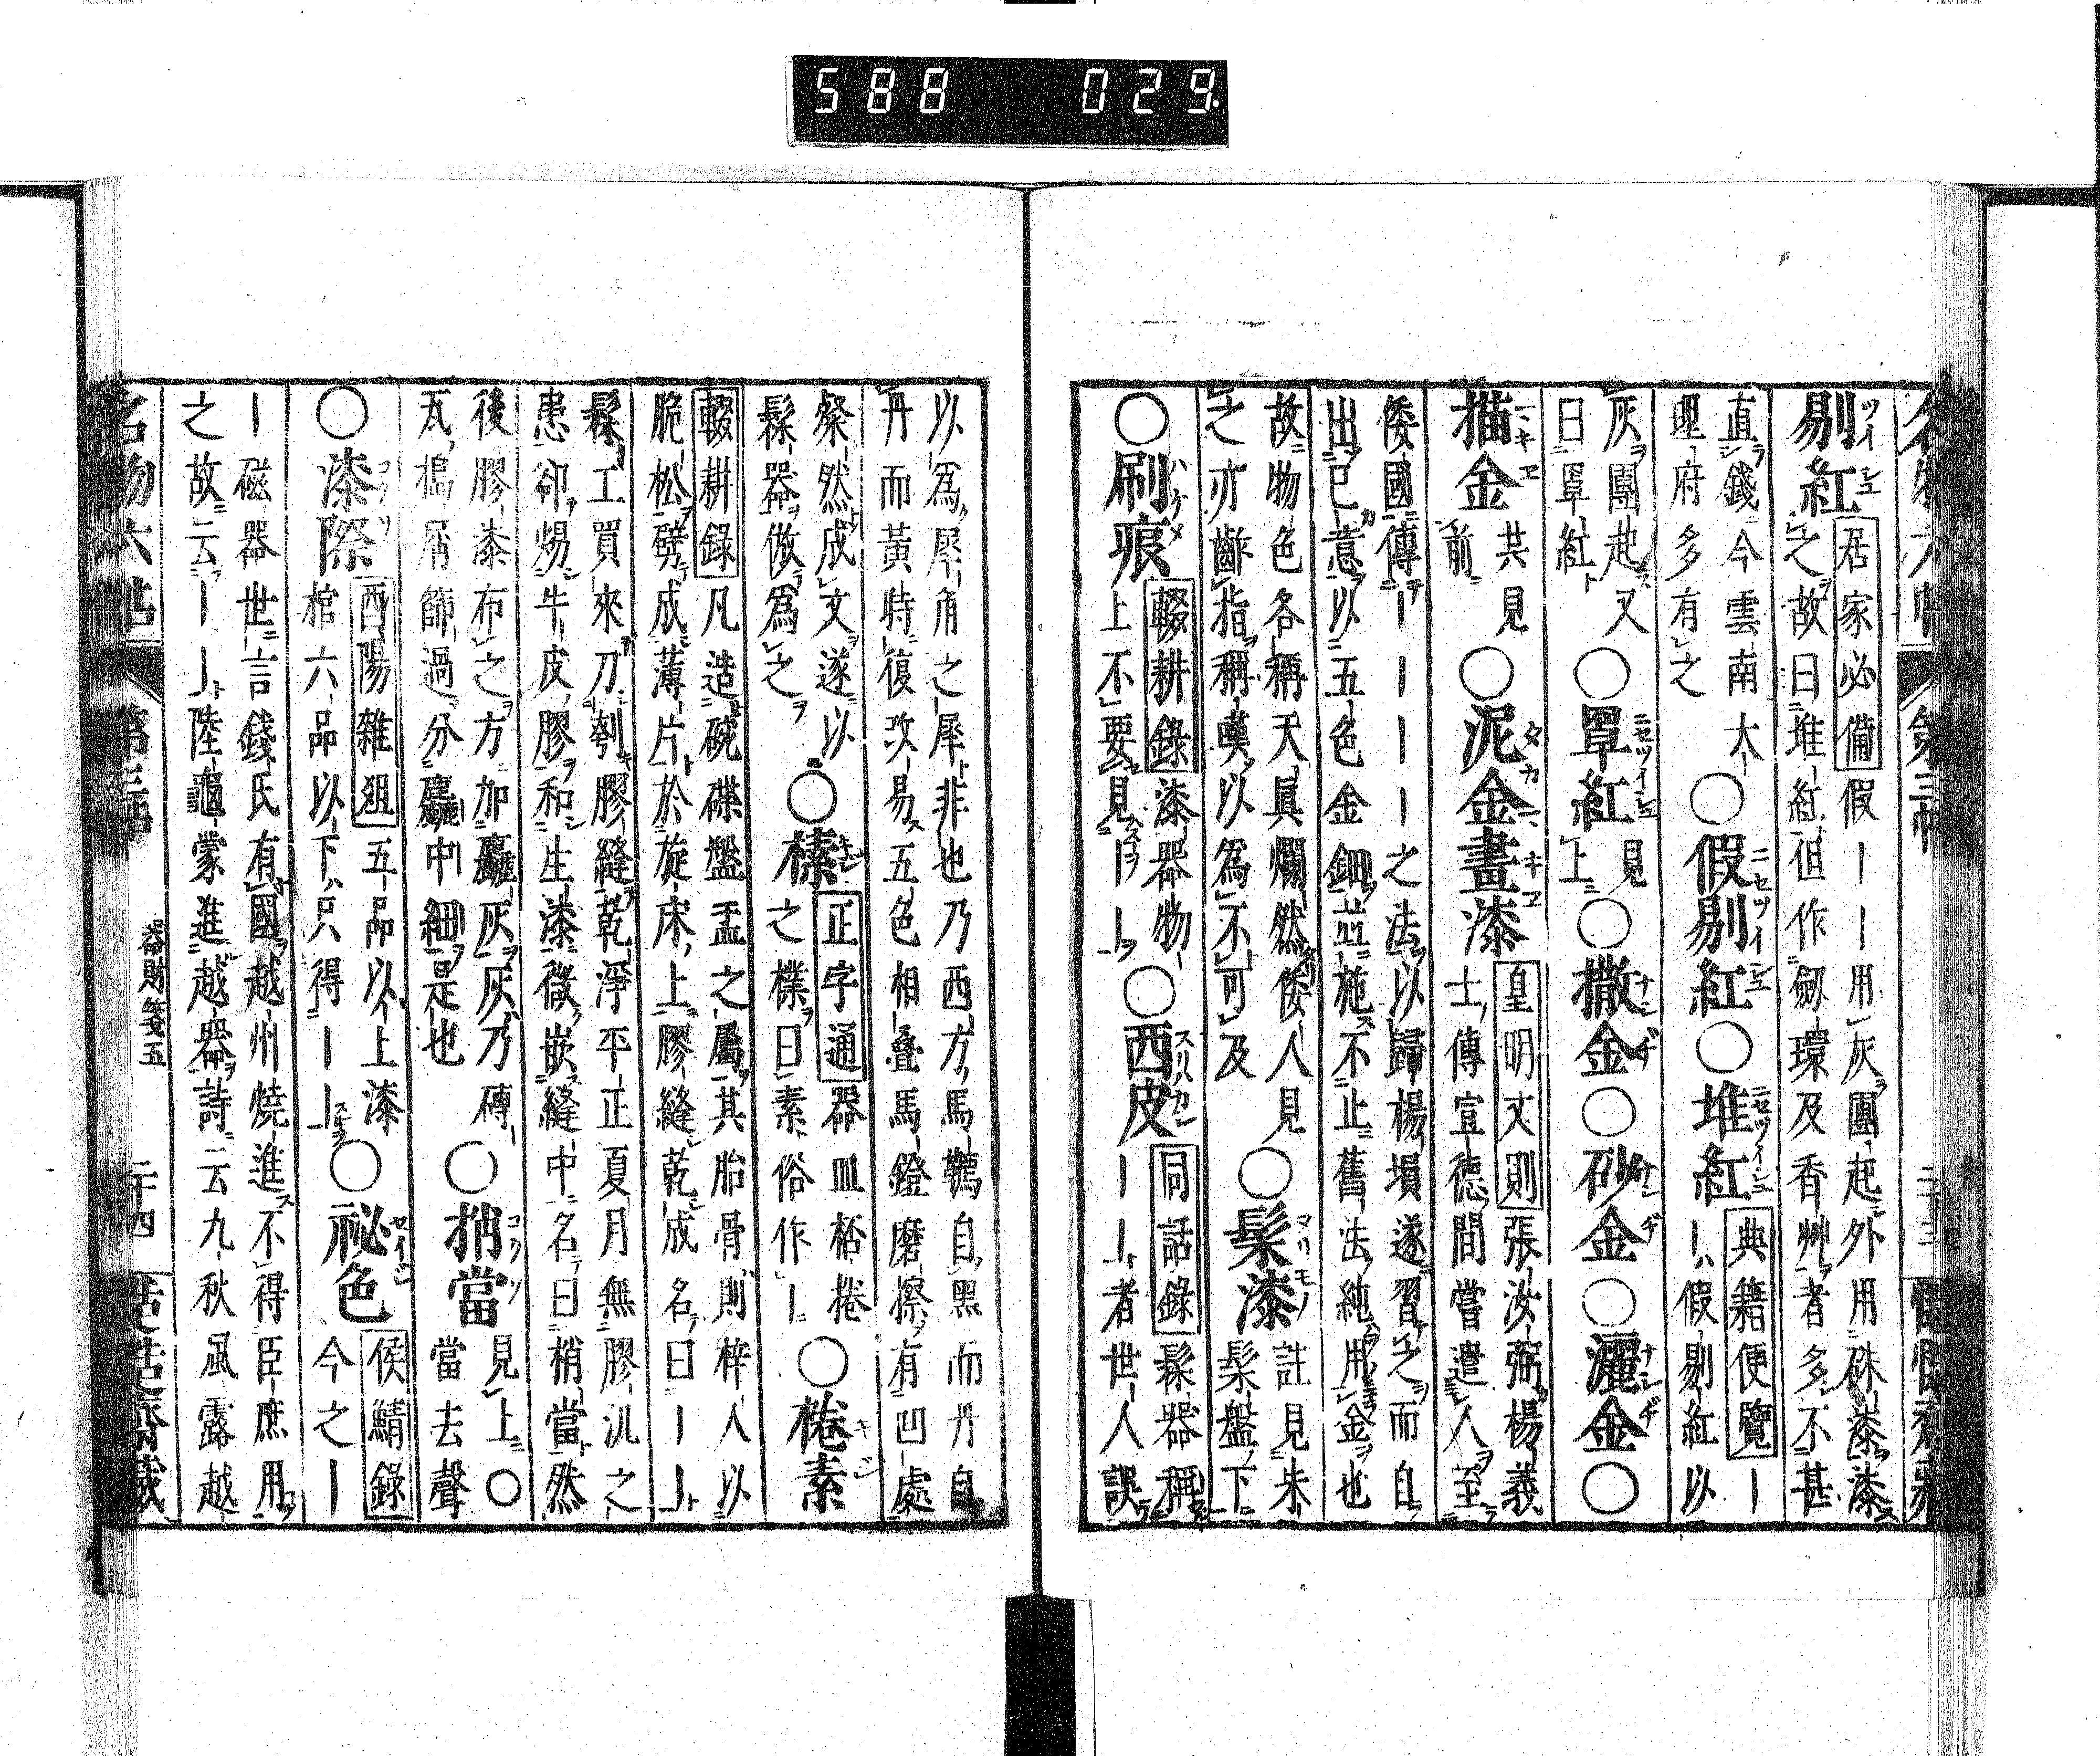 588 029
剔紅 居家必備 假ーー用灰團起外用硃漆漆
之故曰堆紅但作劔環及香艸者多不甚
直錢今雲南大
理府多有之 〇假剔紅〇堆紅 典籍便覽 ー
ー假剔紅以
灰團起又
曰罩紅 〇罩紅 見上 〇撒金〇砂金〇灑金〇
描金 共見前 〇泥金畫漆 皇明文則 張汝弼楊義
士傳宣德間嘗遣人至
倭國傳ーーーー之法以歸楊塤遂習之而自
出己意以五色金鈿並施不止舊法純用金也
故物色各稱天眞爛然倭人見
之亦齰指稱嘆以為不可及 〇髹漆 註見朱
髹盤下
〇刷痕 輟耕錄 漆器物
上不要見ーー 〇西皮 同話錄 髹器稱
ーー者世人誤
以為犀角之犀非也乃西方馬韉自黑而丹自
丹而黃時復改易五色相疊馬鐙磨擦有凹處
粲然成文遂以
髹器倣為之 〇榡 正字通 器皿桮棬
之樸曰素俗作ー 〇棬素
輟耕錄 凡造碗碟盤盂之屬其胎骨則梓人以
脆松劈成薄片於旋床上膠縫乾成名曰ーー
髹工買來刀刳膠縫乾淨平正夏月無膠汎之
患卻煬牛皮膠和生漆微嵌縫中名曰梢當然
後膠漆布之方加麤灰灰乃磚
瓦搗屑篩過分麤中細是也 〇捎當 見上〇
當去聲
〇漆際 酉陽雜俎 五品以上漆
棺六品以下只得ーー 〇祕色 侯鯖錄
今之ー
ー磁器世言錢氏有國越州燒進不得臣庶用
之故云ーー陸龜蒙進越器詩云九秋風露越
名物六帖 第三帖 器財箋五 二十四